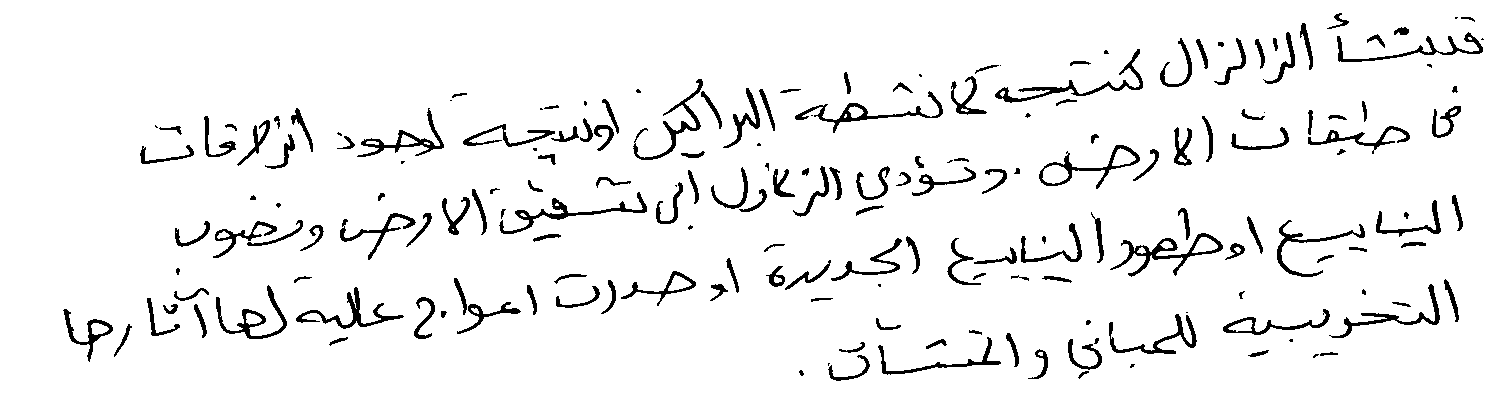 قد ينشأ الزلزال كنتيجة لانشطة البراكين او نتيجة لوجود انزلاقات
في طبقات الارض . وتؤدي الزلازل الى تشقيق الارض ونضوب
الينابيع او ظهور الينابيع الجديدة او حدوث امواج عالية لها آثارها
التخريبية للمباني والمنشآت .